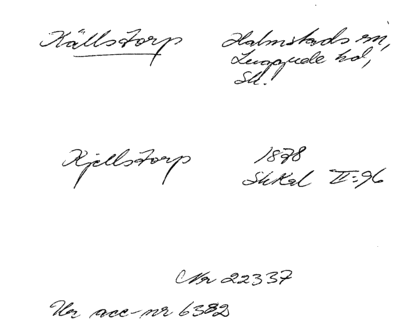 Källstorp Halmstads sn,
Luggude hd,
Sk.
Kjellstorp 1878
SkKal II:96
Nr 22337
Ur acc-nr 6382